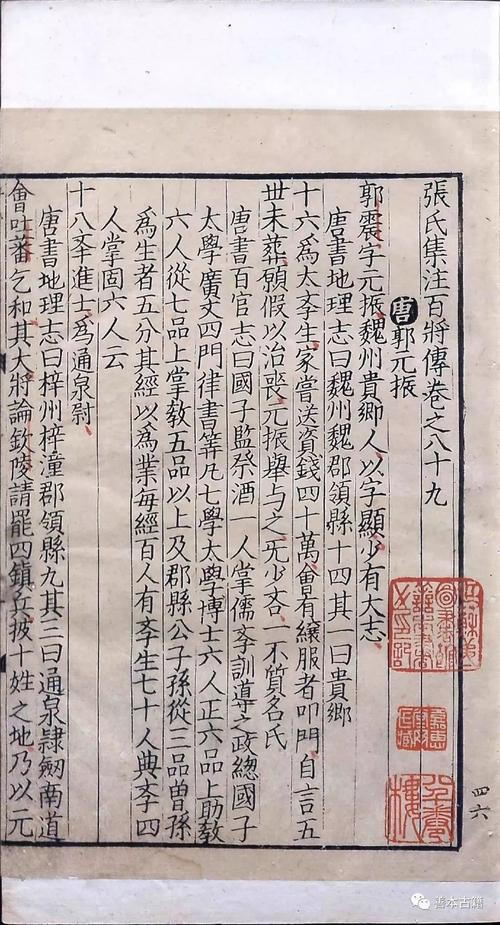 張氏集注百將傳卷之八十九
唐 郭元振
郭震字元振魏州貴鄉人以字顯少有大志
唐書地理志曰魏州魏郡領縣十四其一曰貴鄉
十六為太斈生家嘗送資錢四十萬會有縗服者叩門自言五
丗未葬願假以治喪元振舉与之无少吝一不質名氏
唐書百官志曰國子監祭酒一人掌儒斈訓導之政總國子
太學廣文四門律書筭凡七學太學博士六人正六品上助教
六人從七品上掌教五品以上及郡縣公子孫從三品曾孫
為生者五分其經以為業每經百人有斈生七十人典斈四
人掌固六人云
十八斈進士為通泉尉
唐書地理志曰梓州梓潼郡領縣九其三曰通泉隷劒南道
會吐蕃乞和其大將論欽陵請罷四鎮兵披十姓之地乃以元
四六
善本古籍